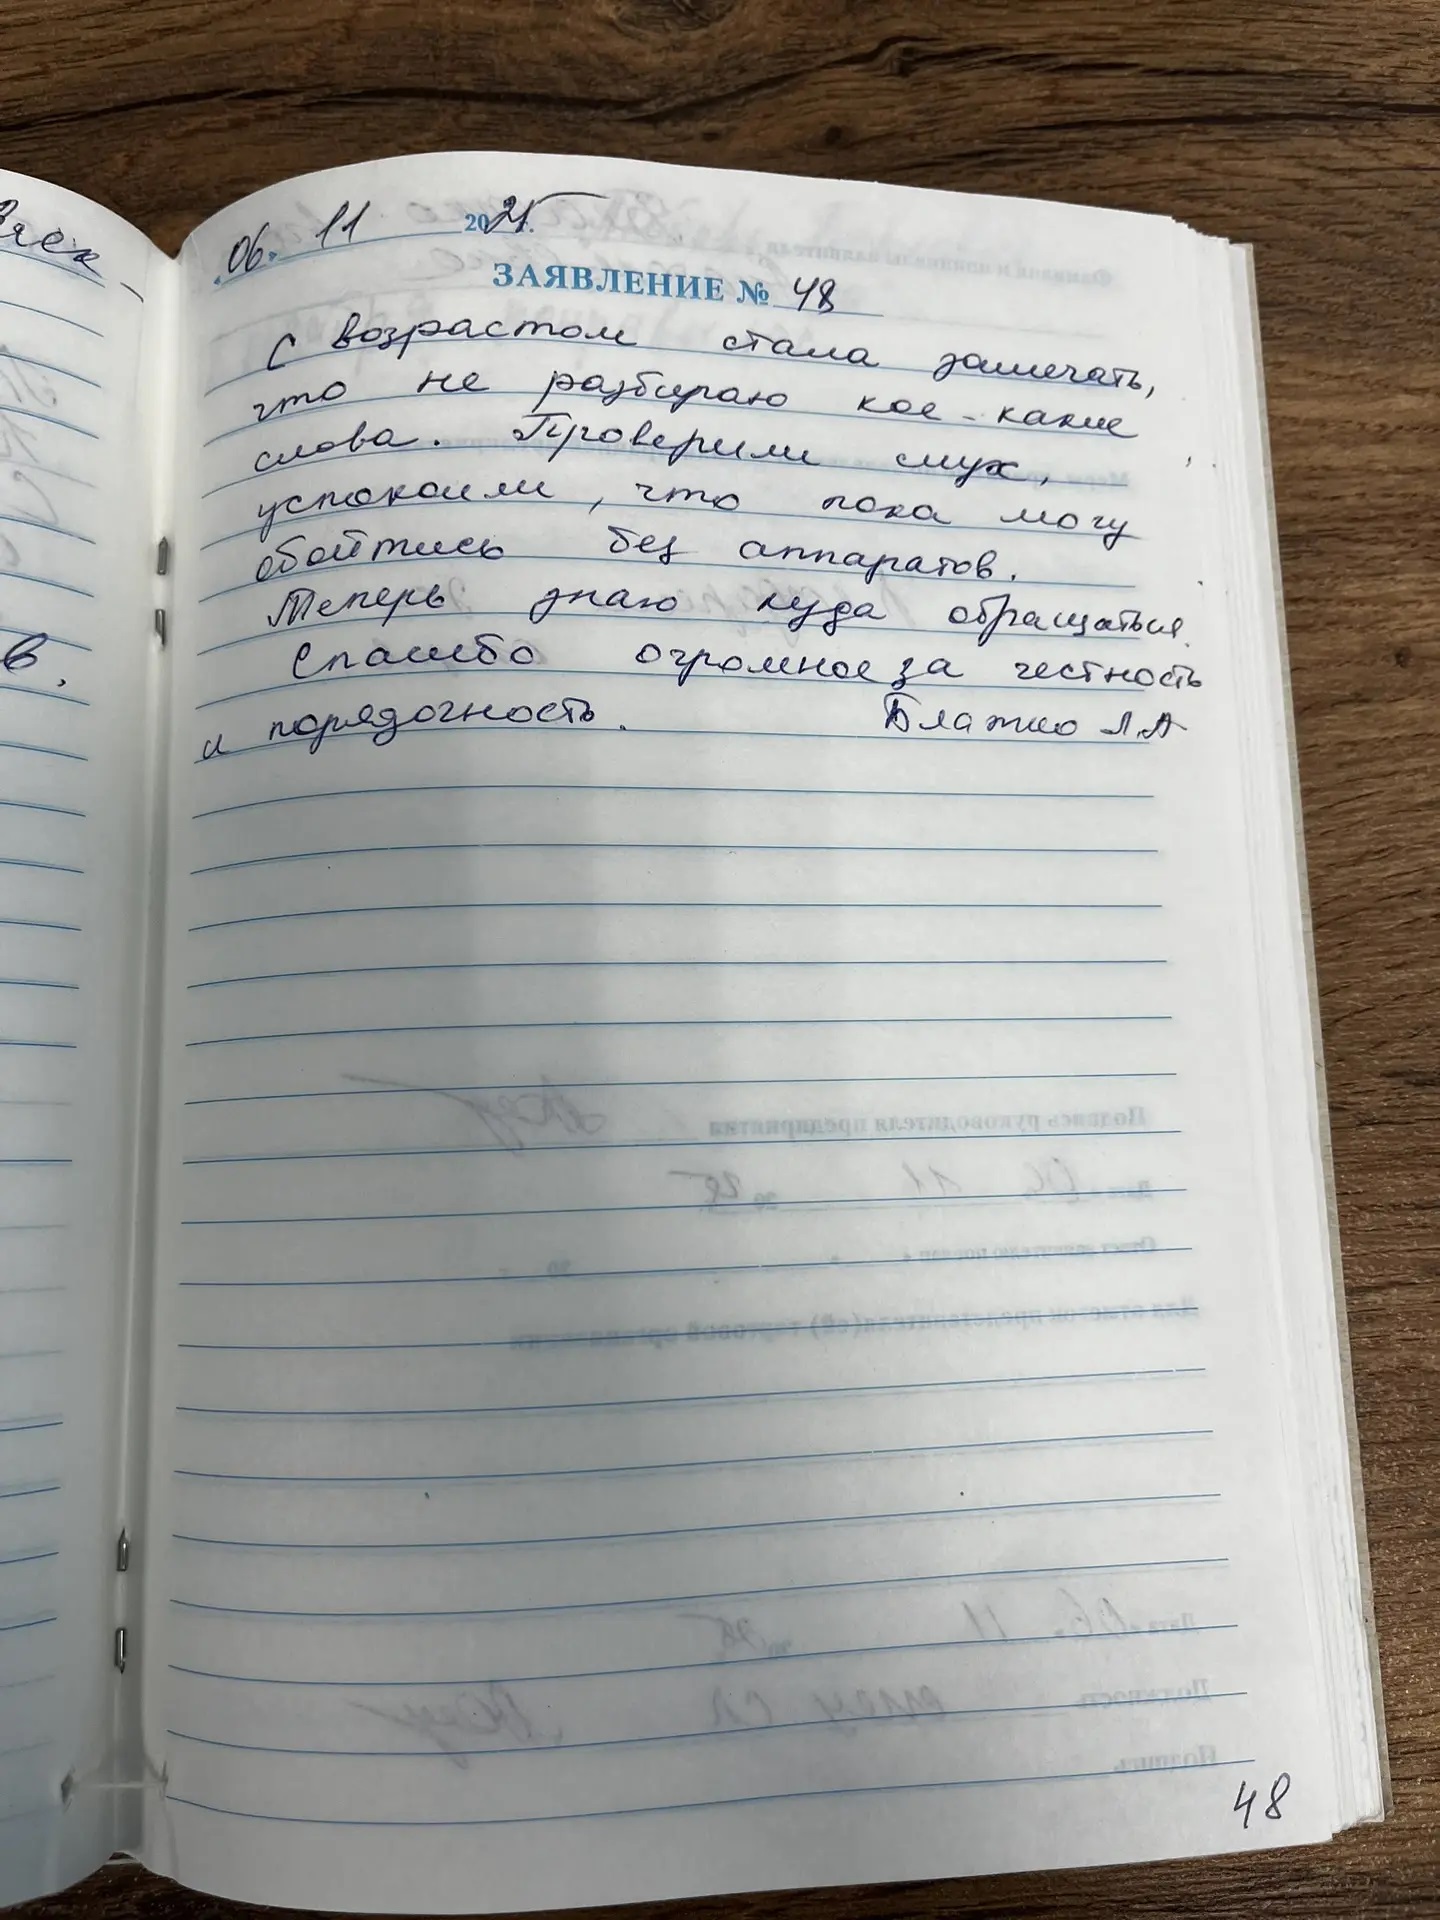 06. 11 2025г.
ЗАЯВЛЕНИЕ № 48
С возрастом стала замечать,
что не разбираю кое-какие
слова. Проверили слух,
успокоили, что пока могу
обойтись без аппаратов.
Теперь знаю куда обращаться.
Спасибо огромное за честность
и порядочность. Блажко Л.А
48